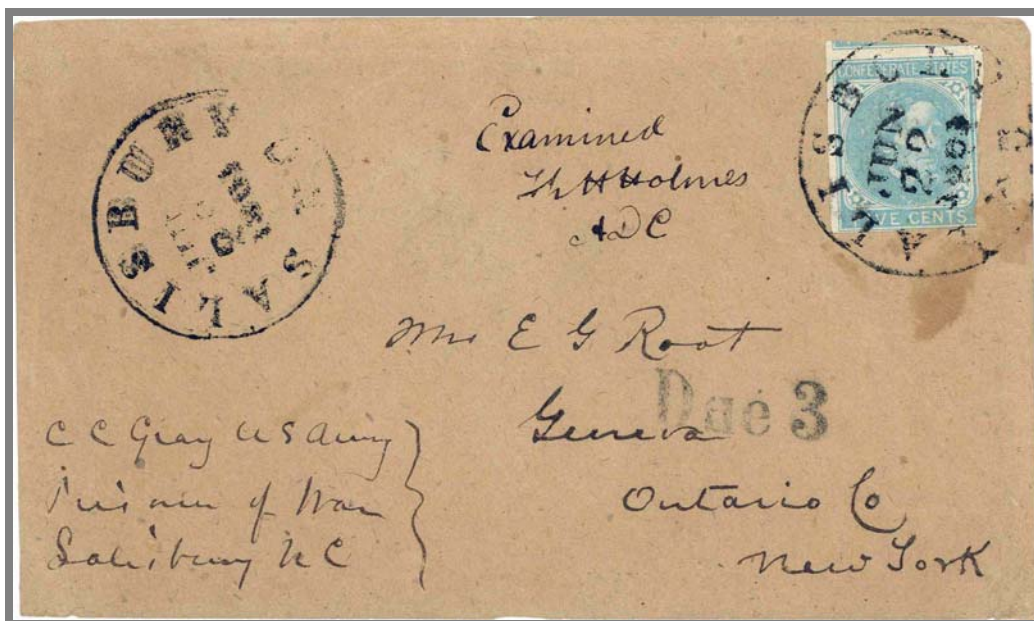 SALISBURY N.C.
Examined
Th H Holmes
ADC
CONFEDERATE STATES
FIVE CENTS
SALISBURY
JUN
22
Mrs E G Root
Due 3
Geneva
Ontario Co
New York
C C Gray US Army
Prisoner of War
Salisbury NC